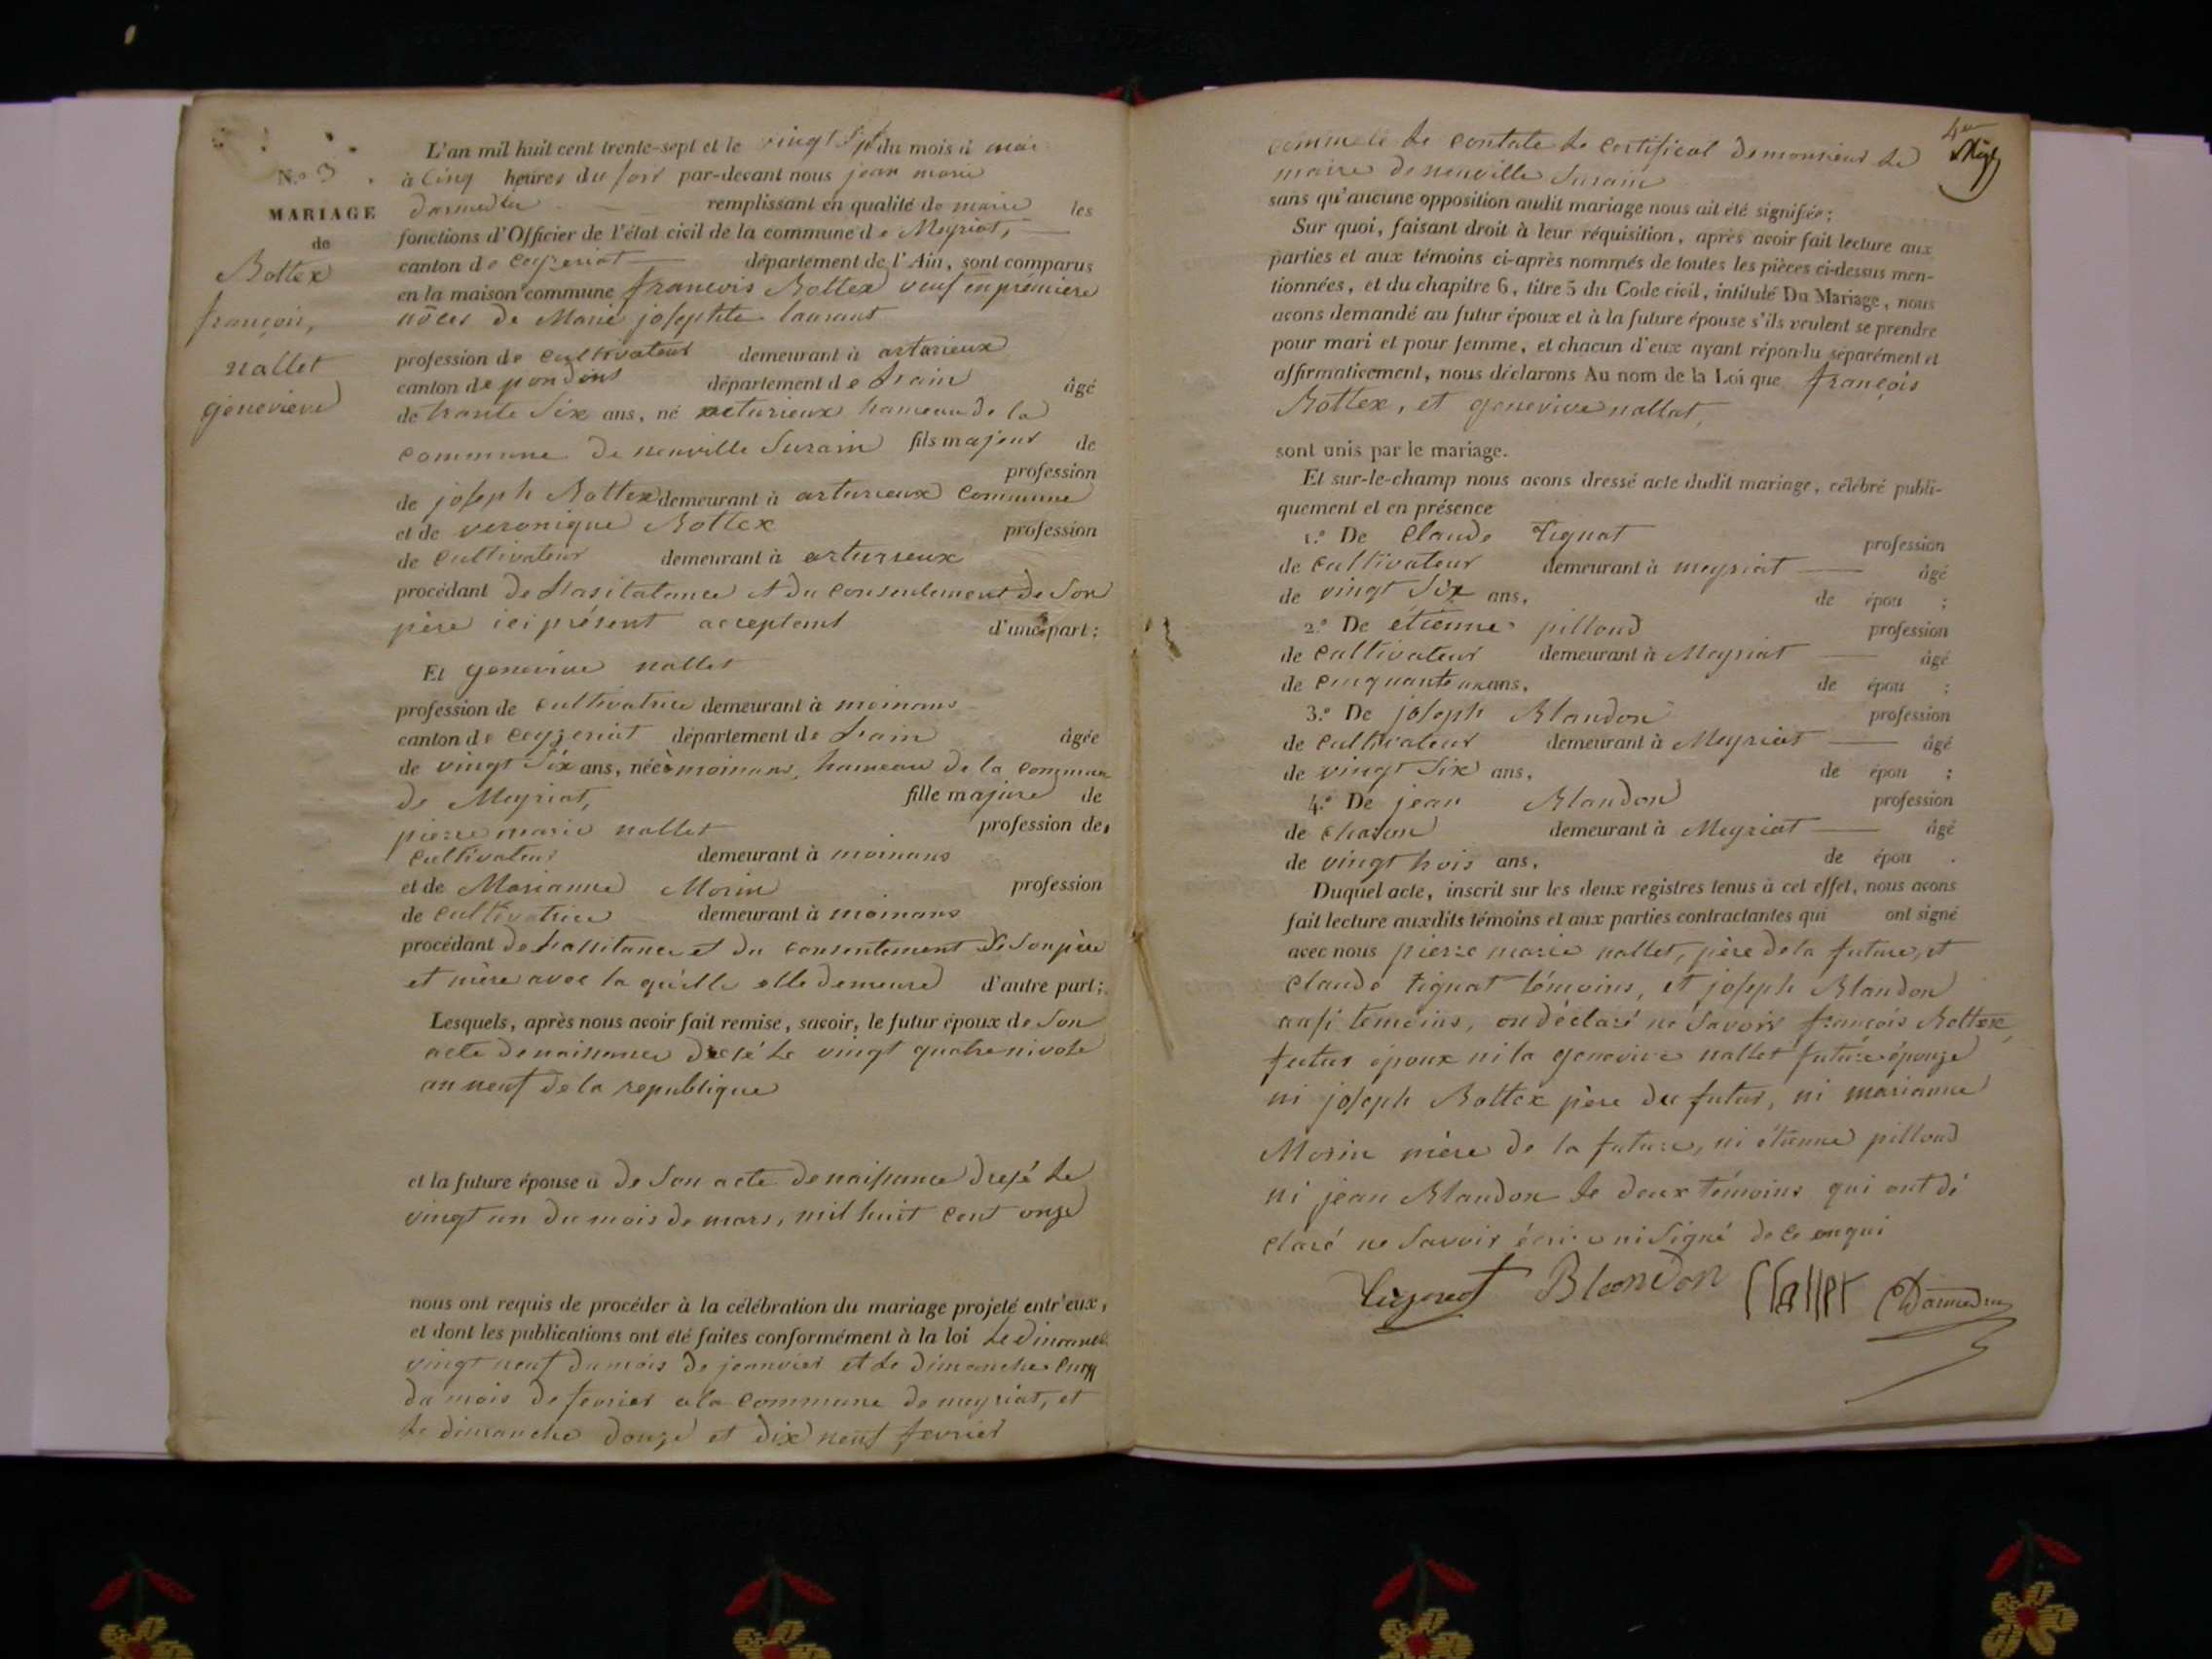 N.o 3.
MARIAGE
de
Bottex
françois,
nallet
genevieve
L'an mil huit cent trente-sept et le vingt sept du mois d mai
à cinq heures du soir par-devant nous jean marie
remplissant en qualité de maire les
fonctions d'Officier de l'état civil de la commune de Meyriat,
canton de ceyzeriat département de l'Ain, sont comparus
en la maison commune francois Bottex veuf en première
nôces de Marie josephte laurant
profession de cultivateur demeurant à artarieux
canton de pondins département de Lain âgé
de trante six ans, né arturieux hameau de la
commune de neuville surain fils majeur de
profession
de joseph Bottex demeurant à arturieux commune
et de veronique Bottex profession
de cultivateur demeurant à arturieux
procédant de Lasitatance et du consentement de son
père ici présent acceptent d'une part;
Et genevive nallet
profession de cultivatrice demeurant à moinans
canton de ceyzeriat département de Lain âgée
de vingt six ans, née à moinans, hameau de la commune
de Meyriat, fille majure de
pierre marie nallet profession de
cultivateur demeurant à moinans
et de Marianne Morin profession
de cultivatrice demeurant à moinans
procédant de Lassitance et du consentement de son père
et mère avec la quélle elle demeure d'autre part;
Lesquels, après nous avoir fait remise, savoir, le futur époux de son
acte de naissance dresé le vingt quatre nivose
an neuf de la republique
et la future épouse a de son acte de naissance dresé le
vingt un du mois de mars, mil huit cent onze
nous ont requis de procéder à la célébration du mariage projeté entr'eux,
et dont les publications ont été faites conformément à la loi Le dimanche
vingt neuf du mois de jeanvier et le dimanche cinq
du mois de fevrier a la commune de meyriat, et
le dimanche douze et dix neuf fevrier
comme le contate le certificat de monsieur le
maire de neuville surain
sans qu'aucune opposition audit mariage nous ait été signifiée;
Sur quoi, faisant droit à leur réquisition, après avoir fait lecture aux
parties et aux témoins ci-après nommés de toutes les pièces ci-dessus men-
tionnées, et du chapitre 6, titre 5 du Code civil, intitulé Du Mariage, nous
avons demandé au futur époux et à la future épouse s'ils veulent se prendre
pour mari et pour femme, et chacun d'eux ayant répondu séparément et
affirmativement, nous déclarons Au nom de la Loi que françois
Bottex, et genevive nallet,
sont unis par le mariage.
Et sur-le-champ nous avons dressé acte dudit mariage, célébré publi-
quement et en présence
1.o De Claude Tignat profession
de cultivateur demeurant à meyriat âgé
de vingt six ans, de épou ;
2.o De étienne pilloud profession
de cultivateur demeurant à Meyriat âgé
de cinquante un ans, de épou ;
3.o De joseph Blandon profession
de cultivateur demeurant à Meyriat âgé
de vingt six ans, de épou ;
4.o De jean Blandon profession
de demeurant à Meyriat âgé
de vingt trois ans, de épou .
Duquel acte, inscrit sur les deux registres tenus à cet effet, nous avons
fait lecture auxdits témoins et aux parties contractantes qui ont signé
avec nous pierre marie nallet, père de la future, et
claude Tignat témoins, et joseph Blandon
ausi temoins, on déclaré ne savoir françois Bottex,
futur époux ni la genevive nallet future épouze
ni joseph Bottex père du futur, ni marianne
Morin mère de la future, ni étienne pilloud
ni jean Blandon le deux témoins qui ont dé
claré ne savoir écrire ni signé de ce enqui
Tignat Blandon Nallet